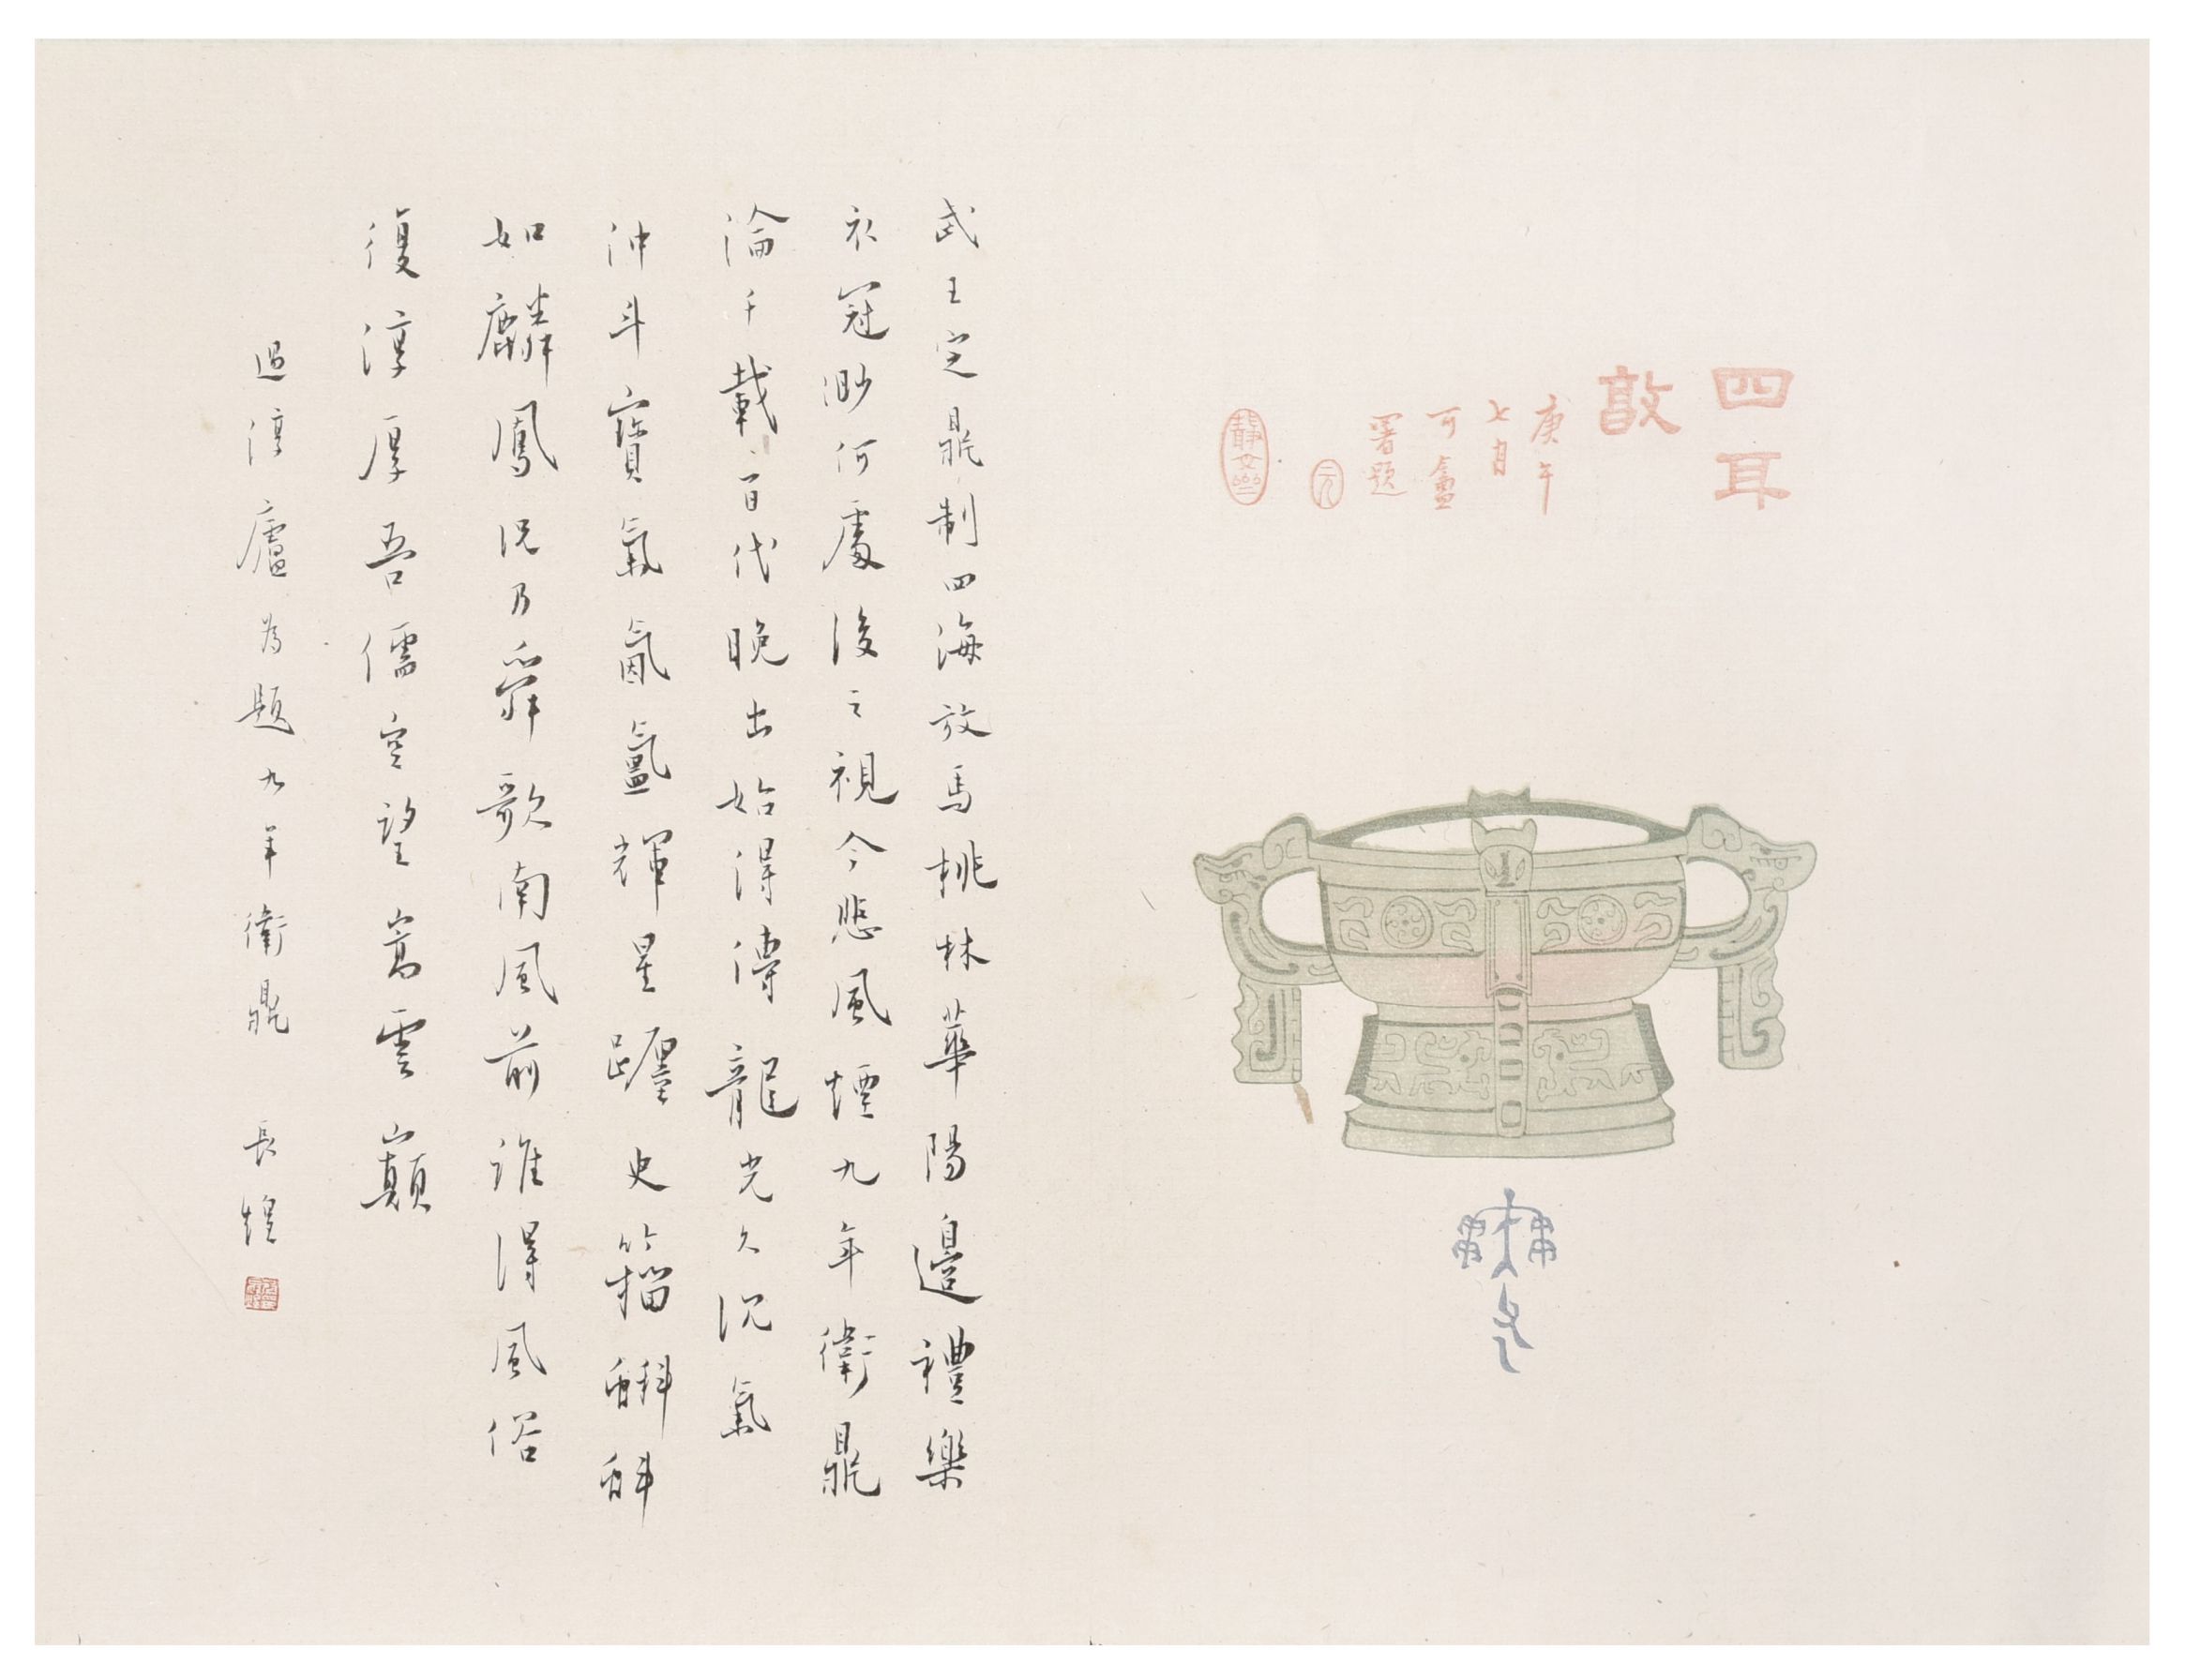 四耳
敦
庚午
七月
可盦
署題
武王定鼎制四海放馬桃林華陽邊禮樂
衣冠渺何處後之視今悲風煙九年衛鼎
淪千載百代晚出始得傳龍光久沉氣
沖斗寶氣氤氳輝星躔史籀斛科
如麟鳳況乃舜歌南風前誰得風俗
復淳厚吾儒空望嵩雲巔
過淳廬為題九年衛鼎 長煌